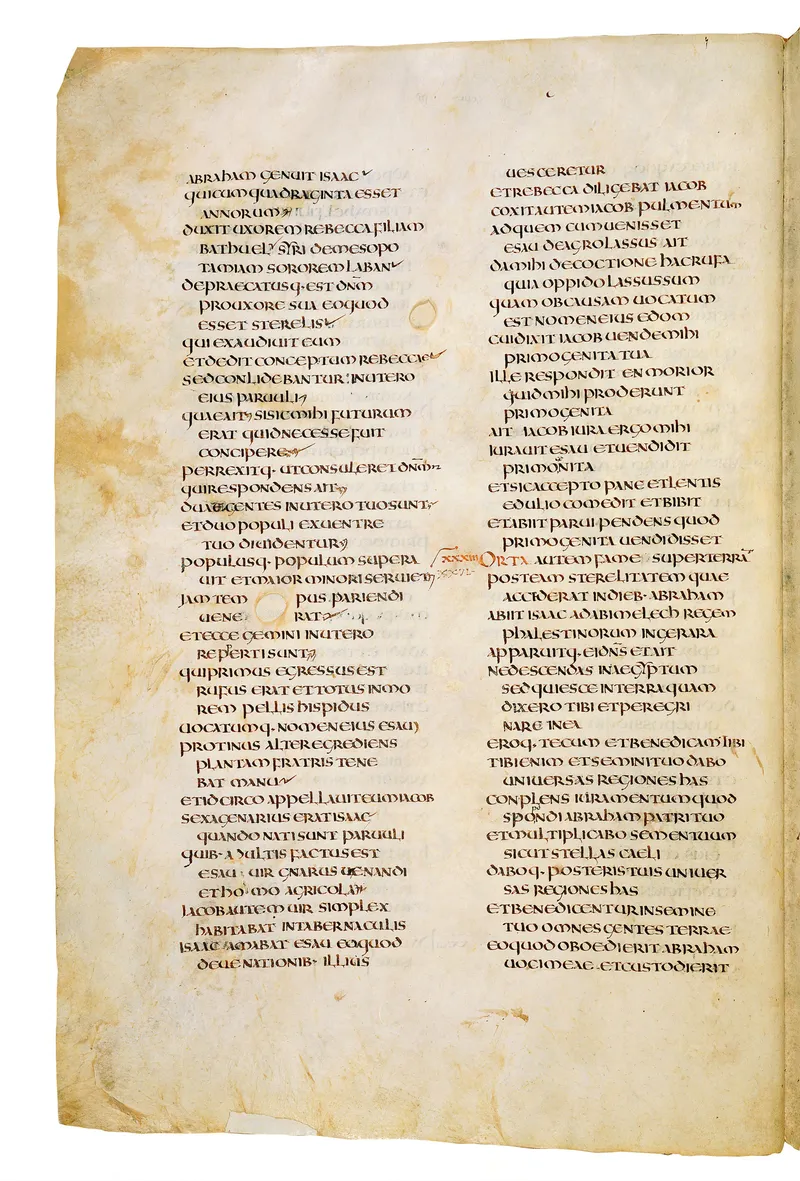 ABRAHAM GENUIT ISAAC
QUICUM QUADRAGINTA ESSET
ANNORUM
DUXIT UXOREM REBECCA FILIAM
BATHUEL SYRI DEMESOPO
TAMIAM SOROREM LABAN
DEPRAECATUSQ· EST DNM
PROUXORE SUA EOQUOD
ESSET STERELIS
QUI EXAUDIUIT EUM
ETDEDIT CONCEPTUM REBECCAE
SED CONLIDEBANTUR INUTERO
EIUS PARUULI
QUAEAIT SISICMIHI FUTURUM
ERAT QUIDNECESSEFUIT
CONCIPERE
PERREXITQ· UTCONSULERET DNM
QUIRESPONDENS AIT
DUAEGENTES INUTERO TUOSUNT
ETDUOPOPULI EXUENTRE
TUO DIUIDENTUR
POPULUSQ· POPULUM SUPERA
UIT ETMAIOR MINORI SERUIET
IAM TEM PUS PARIENDI
UENE RAT
ETECCE GEMINI INUTERO
REPERTI SUNT
QUIPRIMUS EGRESSUS EST
RUFUS ERAT ET TOTUS INMO
REM PELLIS HISPIDUS
UOCATUMQ· NOMEN EIUS ESAU
PROTINUS ALTER EGREDIENS
PLANTAM FRATRIS TENE
BAT MANU
ETIDCIRCO APPELLAUITEUM IACOB
SEXAGENARIUS ERAT ISAAC
QUANDO NATI SUNT PARUULI
QUIB· ADULTIS FACTUS EST
ESAU UIR GNARUS UENANDI
ET HOMO AGRICOLA
IACOBAUTEM UIR SIMPLEX
HABITABAT INTABERNACULIS
ISAAC AMABAT ESAU EOQUOD
DEUENATIONIB· ILLIUS
UESCERETUR
ETREBECCA DILIGEBAT IACOB
COXITAUTEM IACOB PULMENTUM
ADQUEM CUM UENISSET
ESAU DEAGRO LASSUS AIT
DAMIHI DECOCTIONE HAC RUFA
QUIA OPPIDO LASSUS SUM
QUAM OBCAUSAM UOCATUM
EST NOMEN EIUS EDOM
CUIDIXIT IACOB UENDEMIHI
PRIMOGENITA TUA
ILLE RESPONDIT EN MORIOR
QUIDMIHI PRODERUNT
PRIMOGENITA
AIT IACOB IURA ERGO MIHI
IURAUIT ESAU ETUENDIDIT
PRIMONITA
ETSICACCEPTO PANE ETLENTIS
EDULIO COMEDIT ETBIBIT
ETABIIT PARUI PENDENS QUOD
PRIMOGENITA UENDIDISSET
XXXIII ORTA AUTEM FAME SUPERTERRA
POSTEAM STERELITATEM QUAE
ACCIDERAT INDIEB· ABRAHAM
ABIIT ISAAC ADABIMELECH REGEM
PHALESTINORUM INGERARA
APPARUITQ· EIDNS ETAIT
NEDESCENDAS INAEGYPTUM
SEDQUIESCE INTERRA QUAM
DIXERO TIBI ETPEREGRI
NARE INEA
EROQ· TECUM ETBENEDICAMTIBI
TIBIENIM ETSEMINITUO DABO
UNIUERSAS REGIONES HAS
CONPLENS IURAMENTUMQUOD
SPONDI ABRAHAM PATRITUO
ETMULTIPLICABO SEMENTUUM
SICUT STELLAS CAELI
DABOQ· POSTERIS TUIS UNIUER
SAS REGIONES HAS
ETBENEDICENTUR INSEMINE
TUO OMNES GENTES TERRAE
EOQUOD OBOEDIERIT ABRAHAM
UOCI MEAE ETCUSTODIERIT